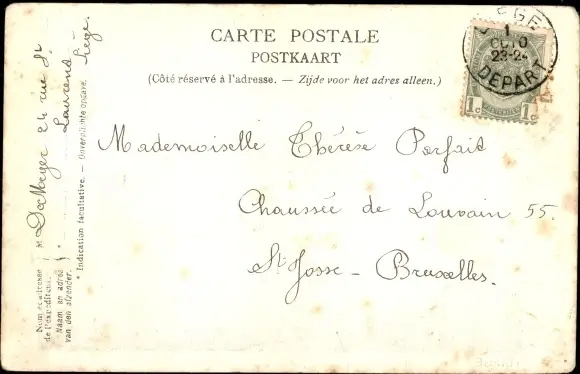 CARTE POSTALE
POSTKAART
(Côté réservé à l'adresse. — Zijde voor het adres alleen.)
LIEGE
1
OCTO
23-24
DEPART
1c 1c
Mademoiselle Thérèse Parfait
Chaussée de Louvain 55.
St Josse - Bruxelles.
Nom et adresse
de l'expéditeur.
Naam en adres
van den afzender.
24 rue St
Laurent
Liège
* Indication facultative. — Onverplichte opgave.